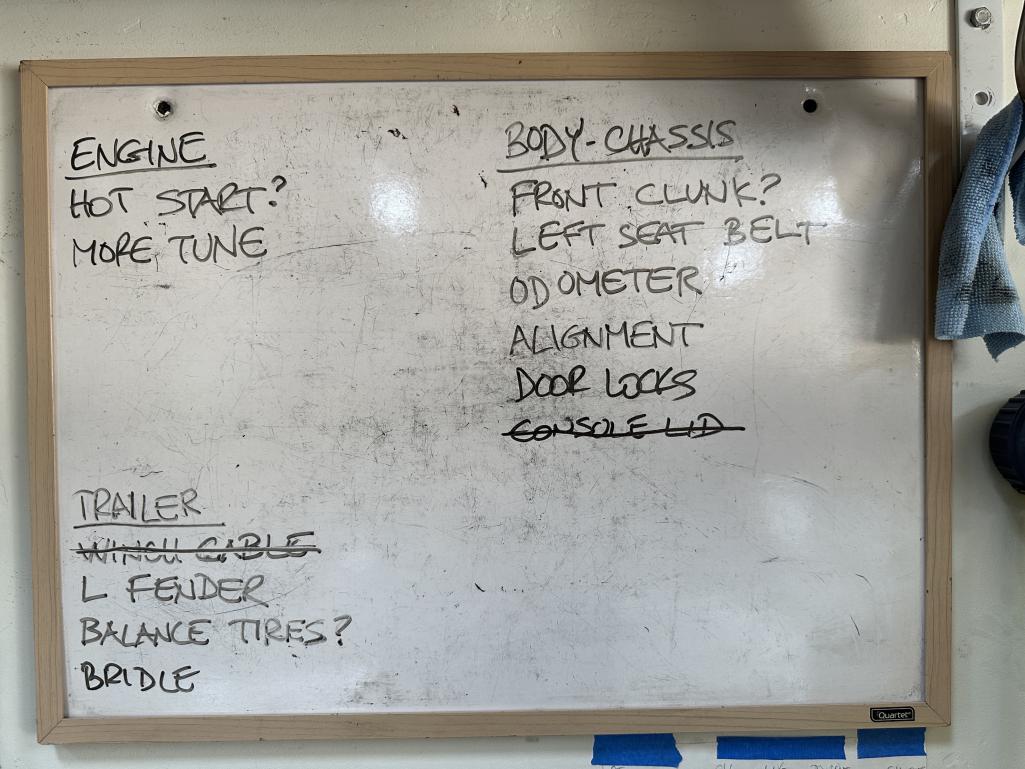 ENGINE
HOT START?
MORE TUNE
BODY-CHASSIS
FRONT CLUNK?
LEFT SEAT BELT
ODOMETER
ALIGNMENT
DOOR LOCKS
CONSOLE LID
TRAILER
WINCH CABLE
L FENDER
BALANCE TIRES?
BRIDLE
Quartet